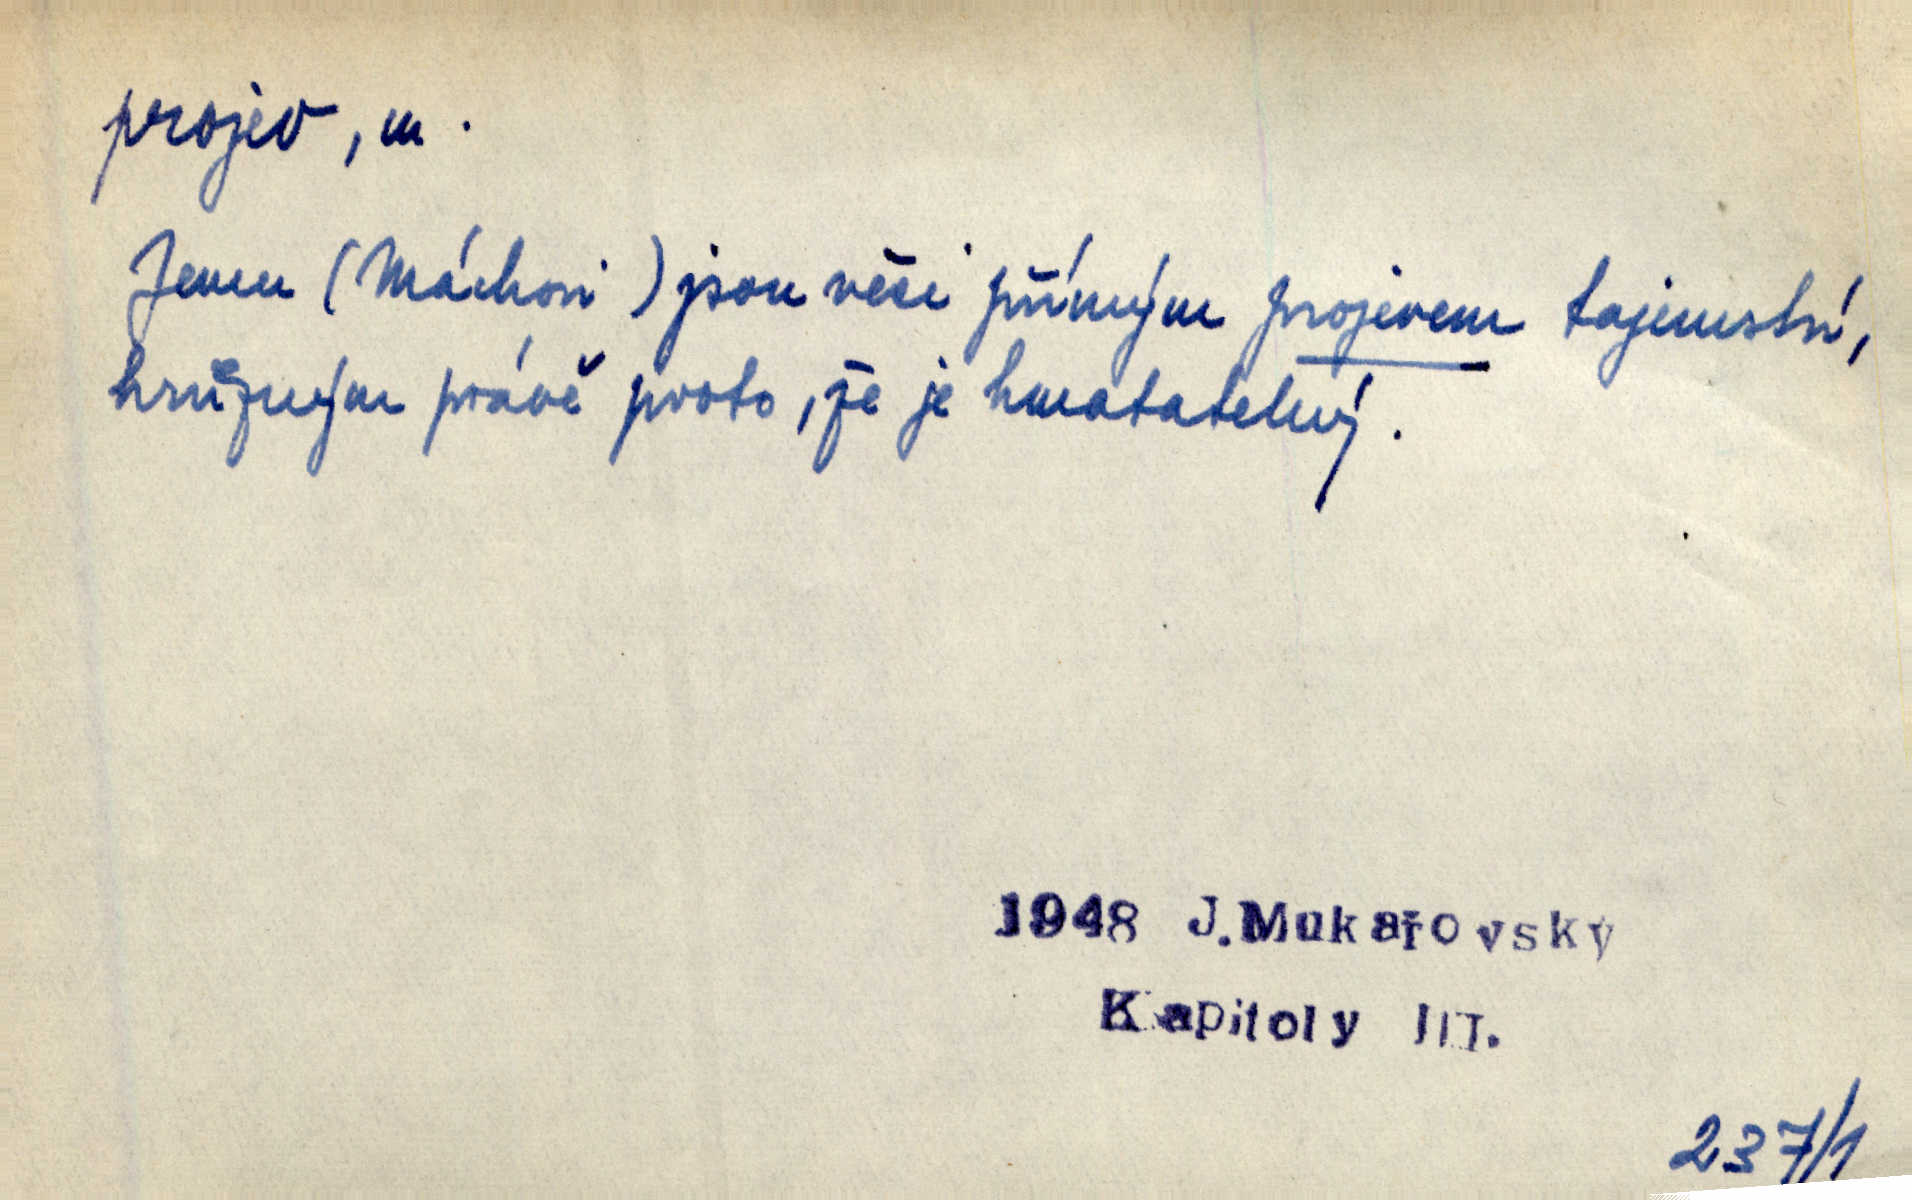 projev, m.
Jemu (Máchovi) jsou věci přímým projevem tajemství,
hrůzným právě proto, že je hmatatelný.
1948 J.Mukařovský
Kapitoly III.
237/1